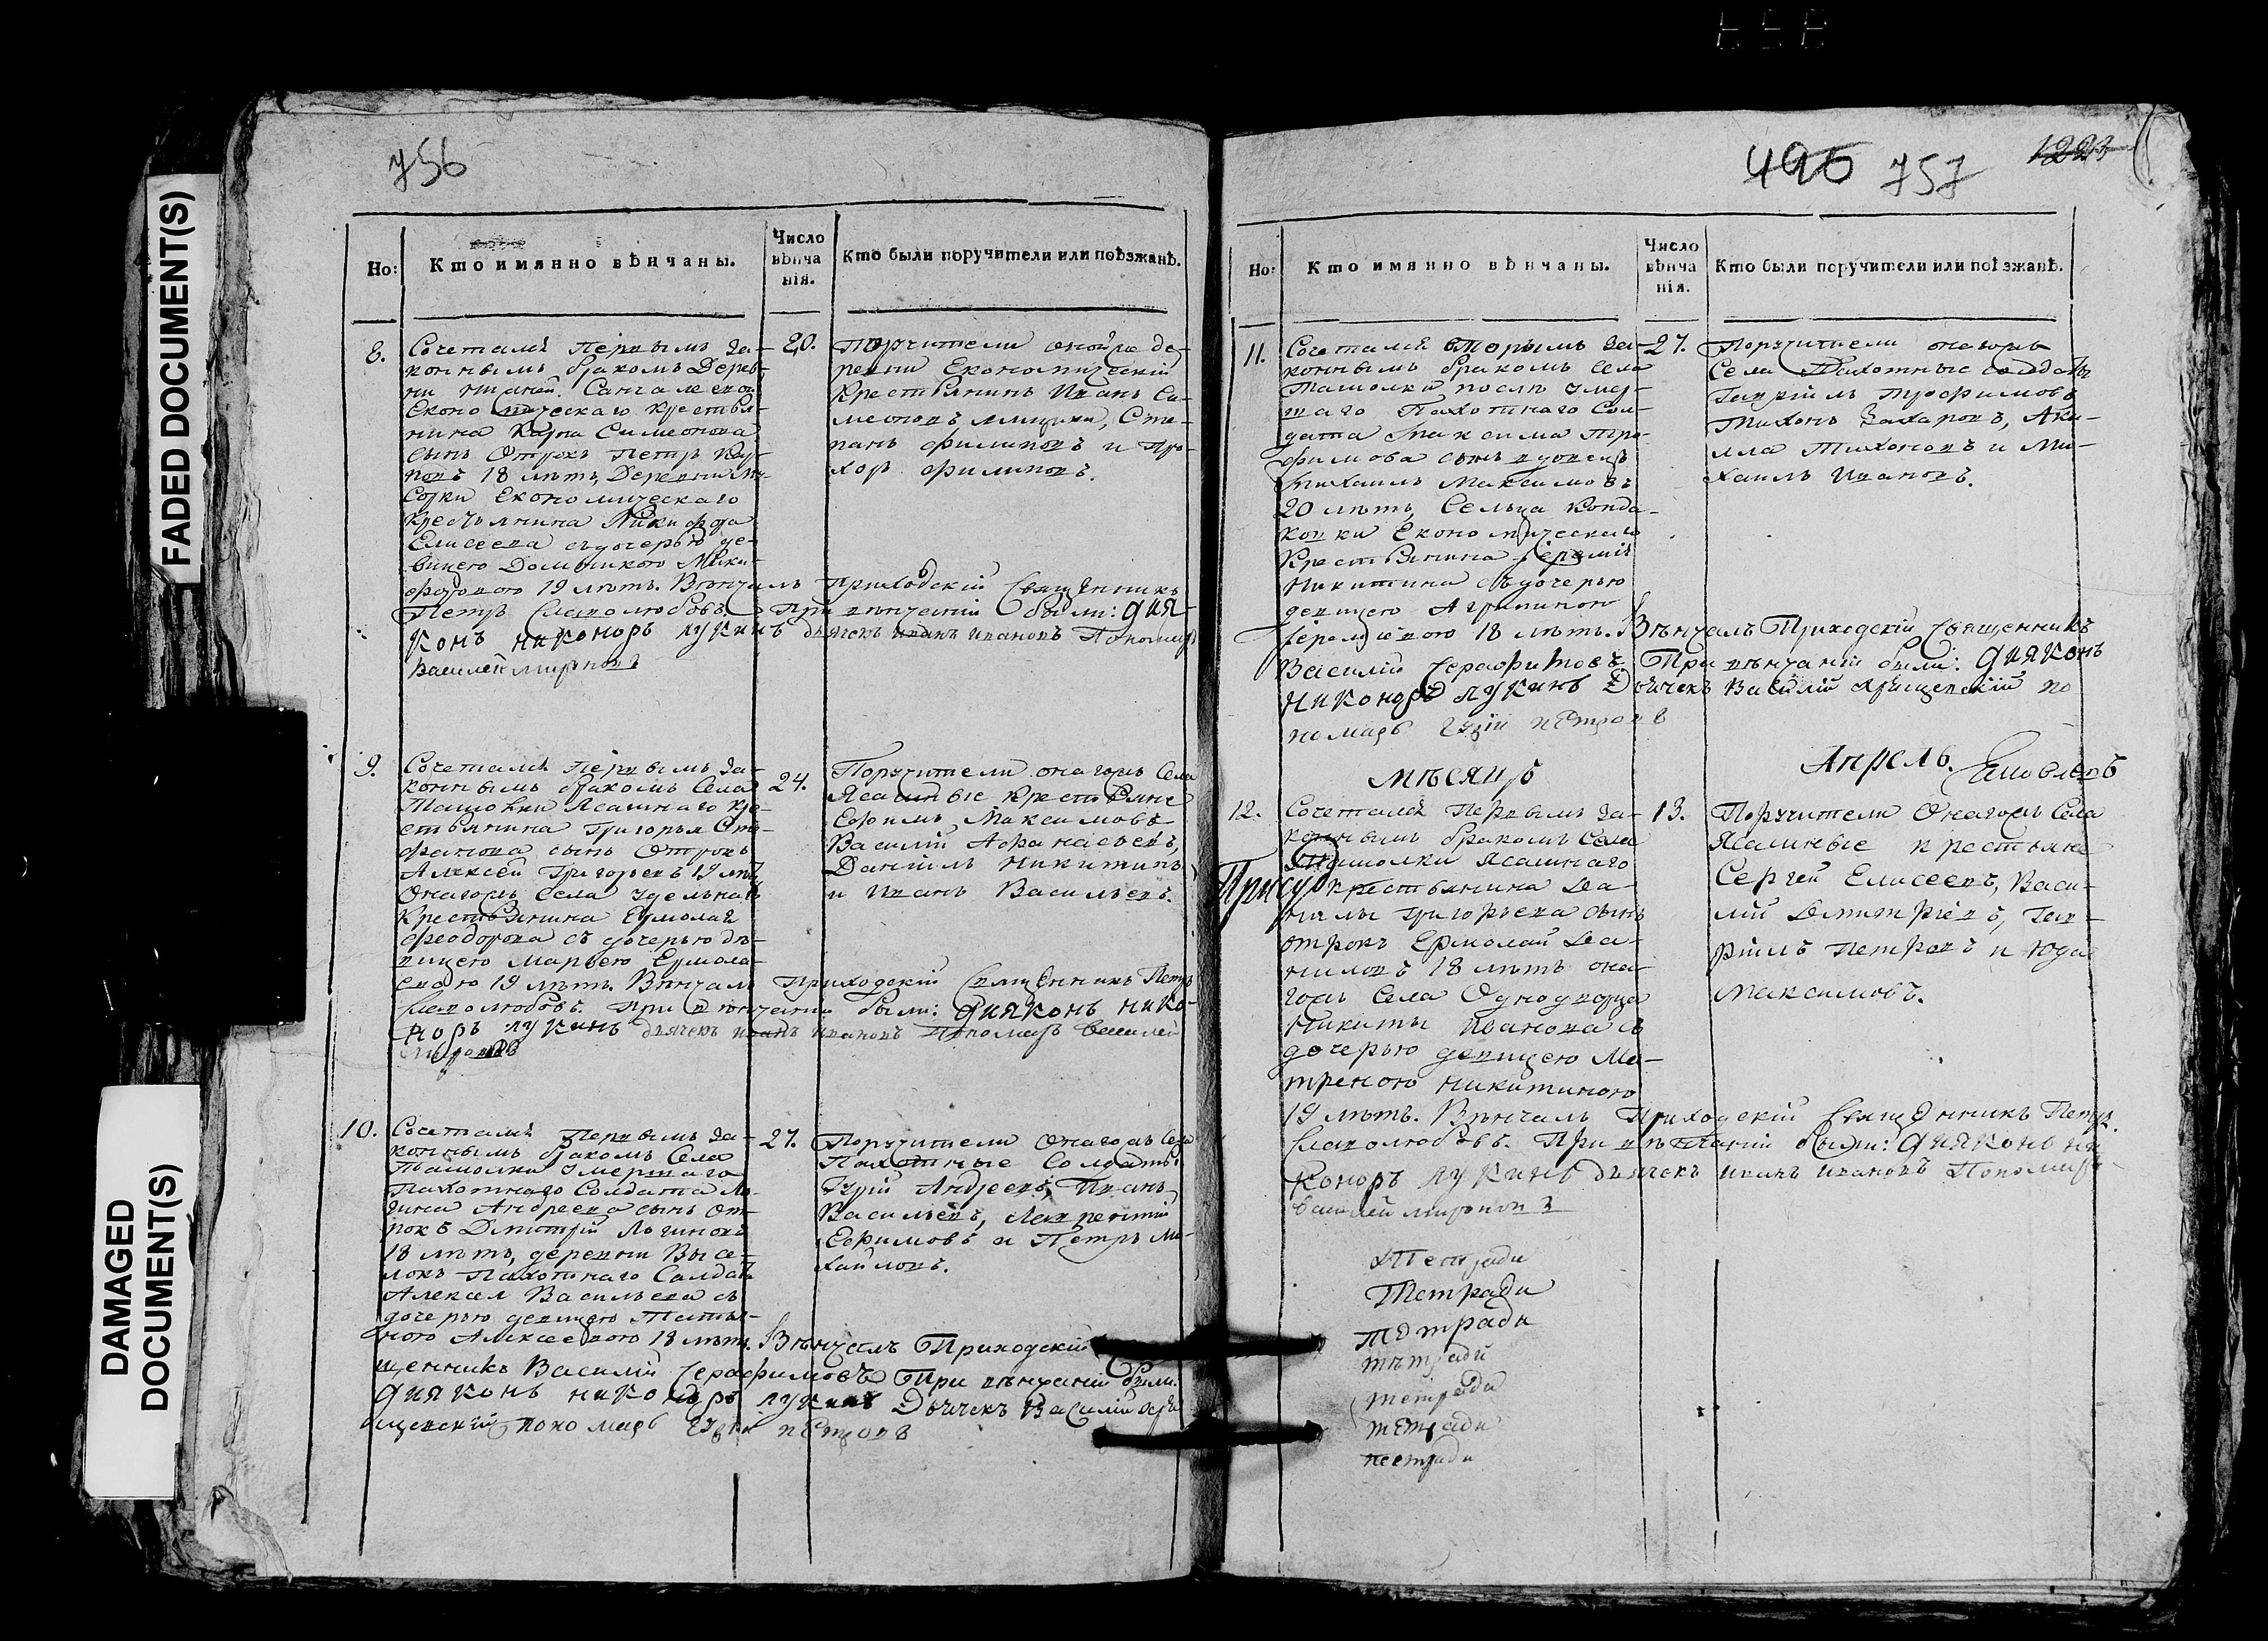 FADED DOCUMENT(S)
DAMAGED
DOCUMENT(S)
756
Но:
Кто имянно вѣнчаны.
Число
вѣнча
нія.
Кто были поручители или поѣзжанѣ.
8.
Сочетался Первымъ за-
коннымъ бракомъ Дерев-
ни
Економическаго крестья-
нина Карпа Симеонова
сынъ Отрокъ Петръ Кар-
повъ 18 лѣтъ, Деревни
Економическаго
Крестьянина Никифора
Елисеева съ дочерью де-
вицею Домникою Ники-
форовою 19 лѣтъ. Вѣнчалъ Приходскій Священникъ
Петръ Славолюбовъ. При вѣнчаніи были: Дия-
конъ никоноръ лукинъ дьячекъ иванъ ивановъ Пономарь
Василей мироновъ
20.
Поручители оной же де-
ревни Економический
Крестьянинъ Иванъ Си-
меоновъ Сте-
панъ филиповъ и Про-
хор филиповъ.
9.
Сочетался первымъ за-
коннымъ бракомъ Села
Ташолки Ясашнаго кре-
стьянина Григорья Сте-
фанова сынъ Отрокъ
Алексей Григорьевъ 19 лѣтъ
Онагожъ Села удельнаго
Крестьянина Ермолая
феодорова съ дочерью дѣ-
вицею Марьею Ермола-
евою 19 лѣтъ. Вѣнчалъ Приходский Священникъ Петръ
Славолюбовъ. При вѣнчаніи были: Дияконъ нико-
норъ лукинъ дьячекъ иванъ ивановъ Пономарь василей
мироновъ
24.
Поручители онагожъ Села
Ясашные Крестьяне
Ефимъ Максимовъ
Василій Афанасьевъ,
Даніилъ Никитинъ
и Иванъ Васильевъ.
10.
Сочетался Первымъ за-
коннымъ бракомъ Села
Ташолки умершаго
Пахотнаго Солдата Ло-
гина Андреева сынъ От-
рокъ Дмитрій Логиновъ
18 лѣтъ, деревни Высе-
локъ Пахотнаго Салдата
Алексея Васильева съ
дочерью девицею Татья-
ною Алексеевою 18 лѣтъ. Вѣнчалъ Приходский
щенникъ Василій Серафимовъ При вѣнчаніи были
дияконъ никоноръ лукинъ Дьячекъ Василій
пономарь гурий петровъ
27.
Поручители Онагожъ Села
Пахотные Солдаты
Гурій Андреевъ, Иванъ
Васильевъ, Лаврентій
Ефимовъ и Петръ Ми-
хайловъ.
496 757 1223
Но:
Кто имянно вѣнчаны.
Число
вѣнча
нія.
Кто были поручители или поѣзжанѣ.
11.
Сочетался вторымъ за-
коннымъ бракомъ села
Ташолки послѣ умер-
шаго Пахотнаго Сол-
дата Максима Тро-
фимова сынъ вдовецъ
Михаилъ Максимовъ
20 лѣтъ, Сельца Конда-
ковки Економическаго
Крестьянина Іереміи
Никитина съ дочерью
девицею Агрипиною
Іеремиевою 18 лѣтъ. Вѣнчалъ Приходскій Священникъ
Василій Серафимовъ При вѣнчаніи были: Дияконъ
никоноръ лукинъ Дьячекъ Василій по
номарь гурій петровъ
27.
Поручители онагожъ
Села Пахотные солдаты
Гавріилъ Трофимовъ
Тихонъ Захаровъ, Аки-
ла Тихоновъ и Ми-
хаилъ Ивановъ.
мѣсяцъ Апрель.
12.
Сочетался Первымъ за-
коннымъ бракомъ Села
Ташолки Ясашнаго
Крестьянина Да-
нилы Григорьева сынъ
отрокъ Ермолай Да-
ниловъ 18 лѣтъ она-
гожъ Села Однодворца
Никиты Иванова съ
дочерью девицею Ма-
треною Никитиною
19 лѣтъ. Вѣнчалъ Приходский Священникъ Петръ
Славолюбовъ. При вѣнчаніи были: Дияконъ ни
коноръ лукинъ дьячекъ иванъ ивановъ Пономарь
василей мироновъ
13.
Поручители Онагожъ Села
Ясашные крестьяне
Сергей Елисеевъ, Васи-
лій Дмитріевъ, Гав-
ріилъ Петровъ и Юда
Максимовъ.
Тетради
Тетради
Тетради
тѣтради
тетради
тетради
тетради